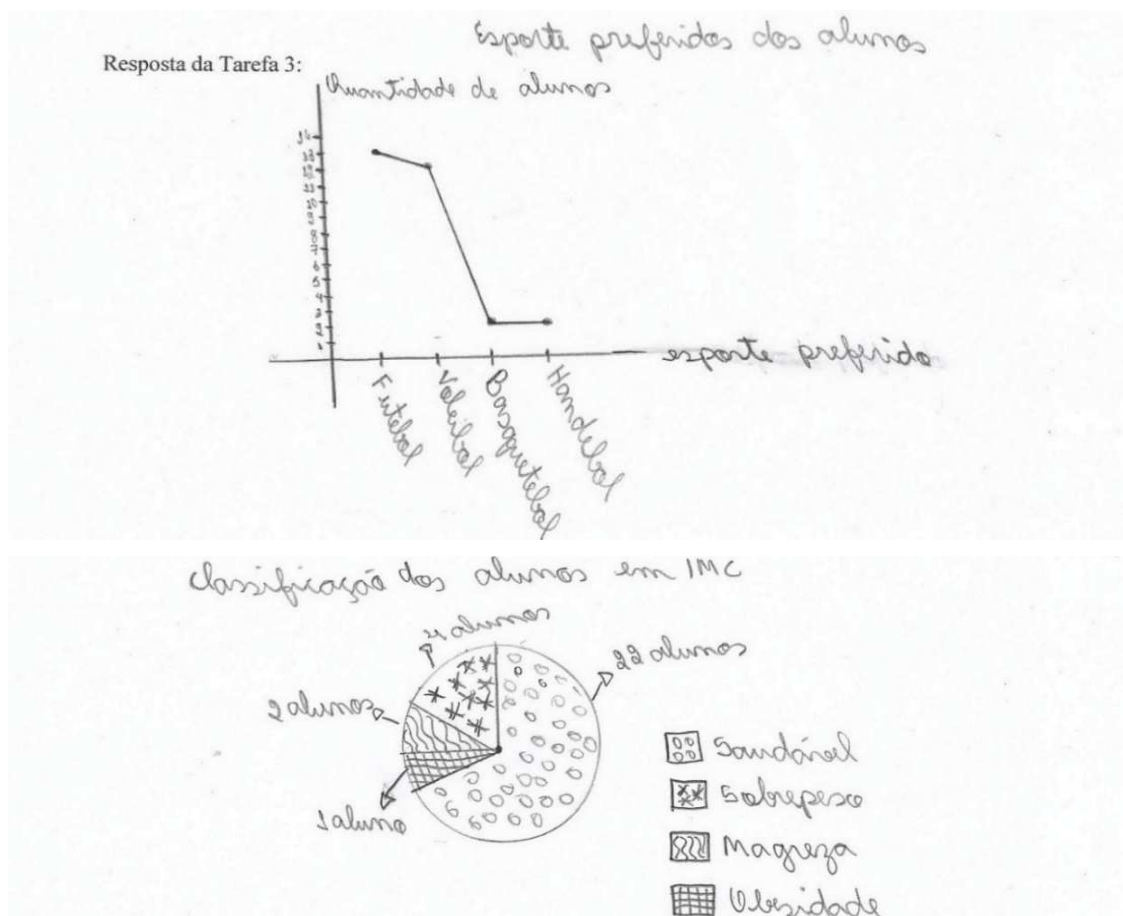 Esporte preferidos dos alunos
Resposta da Tarefa 3:
Quantidade de alunos
14
13
12
11
10
9
8
7
6
5
4
3
2
1
esporte preferido
Futebol
Voleibol
Basquetebol
Handebol
Classificação dos alunos em IMC
4 alunos
22 alunos
2 alunos
1 aluno
Saudável
Sobrepeso
Magreza
Obesidade